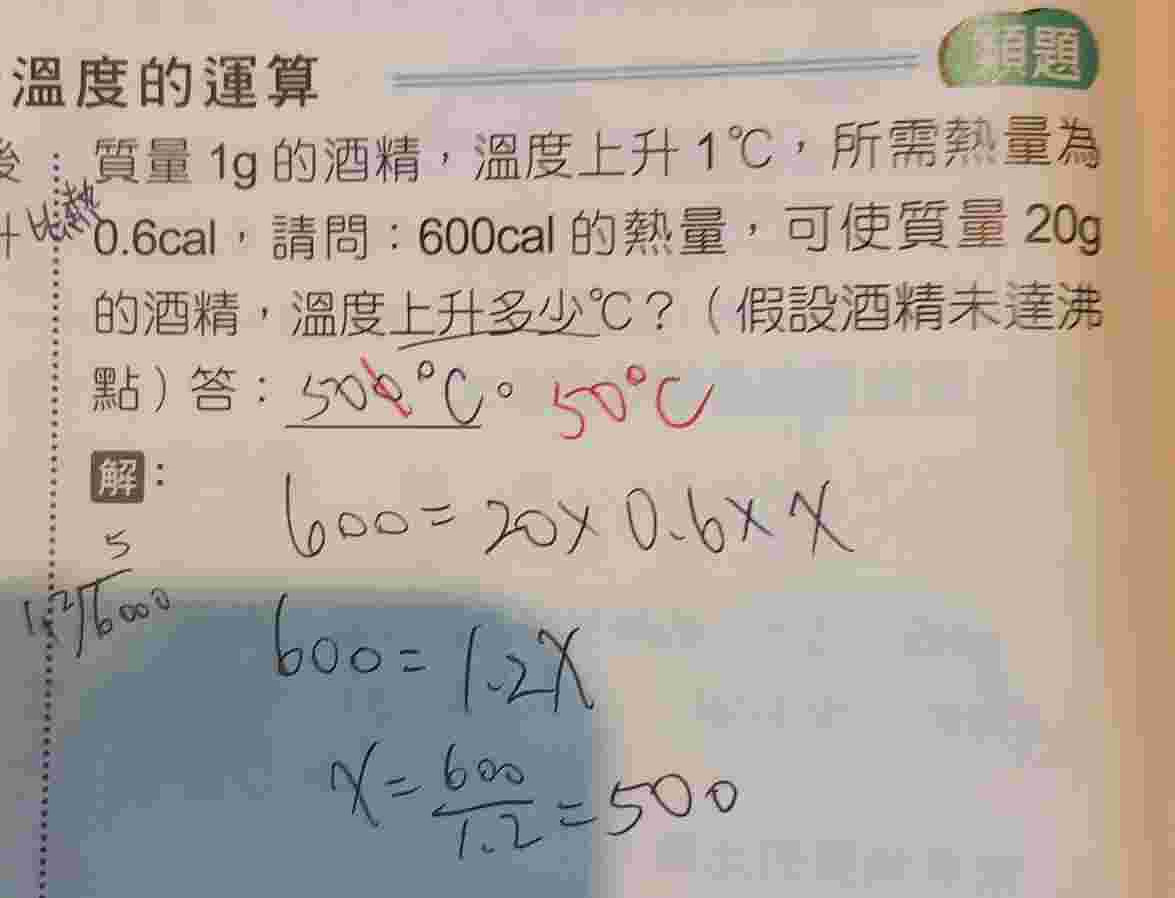 溫度的運算
類題
後
質量 1g 的酒精，溫度上升 1℃，所需熱量為
升
比熱
0.6cal，請問：600cal 的熱量，可使質量 20g
的酒精，溫度上升多少℃？（假設酒精未達沸
點）答：500°C。 50°C
解：
600=20×0.6×x
5
1.2)6000
600=1.2x
x=600/1.2=500